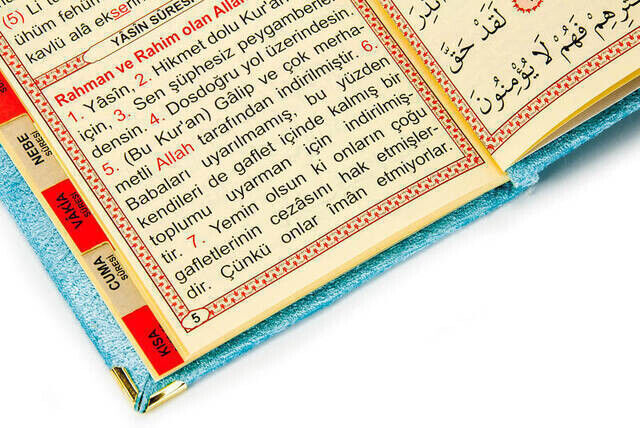 (5) Li
ühüm fehüm
kavlü alâ ekserih
YÂSÎN SÛRESİ
Rahman ve Rahim olan Allah
1. Yâsîn, 2. Hikmet dolu Kur'an
için, 3. Sen şüphesiz peygamberler-
densin. 4. Dosdoğru yol üzerindesin.
5. (Bu Kur'an) Gâlip ve çok merha-
metli Allah tarafından indirilmiştir. 6.
Babaları uyarılmamış, bu yüzden
kendileri de gaflet içinde kalmış bir
toplumu uyarman için indirilmiş-
tir. 7. Yemin olsun ki onların çoğu
gafletlerinin cezâsını hak etmişler-
dir. Çünkü onlar imân etmiyorlar.
5
NEBE
SÛRESİ
VÂKIA
SÛRESİ
CUMA
SÛRESİ
KISA
لَقَدْ حَقَّ
فَهُمْ لَا يُؤْمِنُونَ